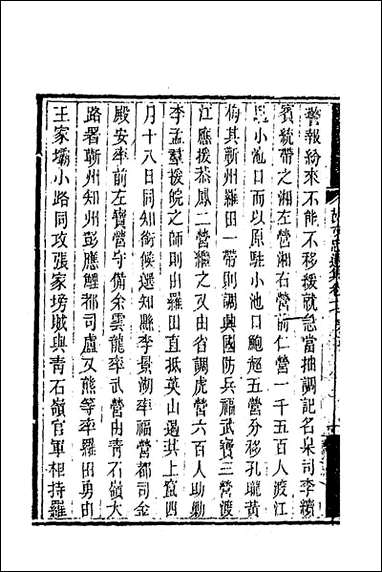 警報紛來不能不移援就急當抽調記名臬司李續
賓統帶之湘左營湘右營前仁營一千五百人渡江
小池口而以原駐小池口鮑超五營分移孔壠黃
梅其蘄州羅田一帶則調興國防兵福武寶三營渡
江應援恭鳳二營繼之由省調虎營六百人助勦
李孟羣援皖之師則由羅田直抵英山遏其上竄四
月十八日同知銜候選知縣李景湖率福營都司金
殿安率前左寶營守備余雲龍率武營由青石嶺大
路署蘄州知州彭應鯉都司盧又熊等率羅田勇由
王家壩小路同攻張家塝賊與青石嶺官軍相持羅